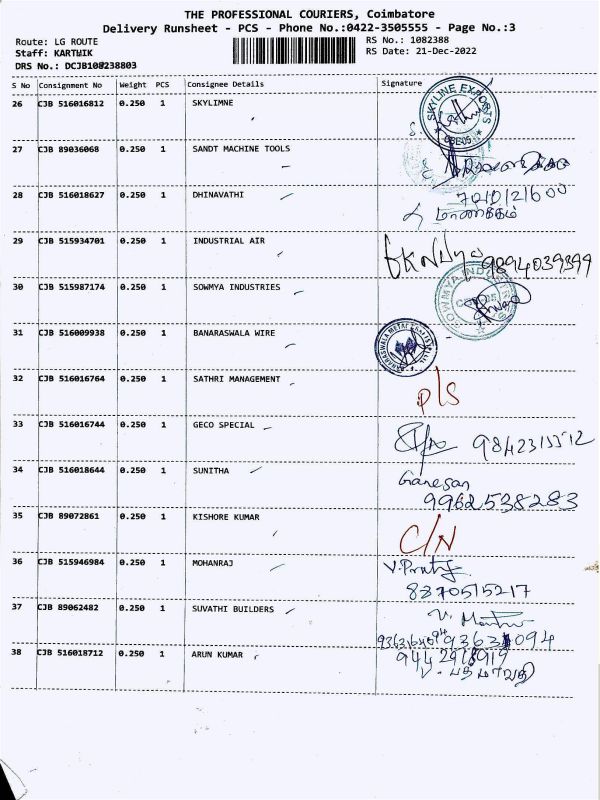 THE PROFESSIONAL COURIERS, Coimbatore
Delivery Runsheet - PCS - Phone No.:0422-3505555 - Page No.:3
Route: LG ROUTE
RS No.: 1082388
Staff: KARTWIK
RS Date: 21-Dec-2022
DRS No.: DCJB108238803
S No Consignment No Weight PCS Consignee Details Signature
26 CJB 516016812 0.250 1 SKYLIMNE
SKYLINE EXPORTS
27 CJB 89036068 0.250 1 SANDT MACHINE TOOLS
28 CJB 516018627 0.250 1 DHINAVATHI
7010121600
மாணிக்கம்
29 CJB 515934701 0.250 1 INDUSTRIAL AIR
9894039399
30 CJB 515987174 0.250 1 SOWMYA INDUSTRIES
SOWMYA INDUSTRIES
31 CJB 516009938 0.250 1 BANARASWALA WIRE
32 CJB 516016764 0.250 1 SATHRI MANAGEMENT
P/S
33 CJB 516016744 0.250 1 GECO SPECIAL
9842315512
34 CJB 516018644 0.250 1 SUNITHA
Ganesan
9962538283
35 CJB 89072861 0.250 1 KISHORE KUMAR
C/N
36 CJB 515946984 0.250 1 MOHANRAJ
8870515217
37 CJB 89062482 0.250 1 SUVATHI BUILDERS
38 CJB 516018712 0.250 1 ARUN KUMAR
9442918919